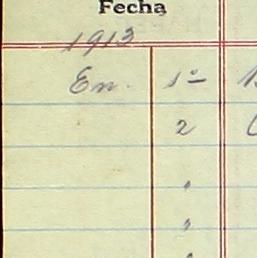 Fecha
1913
En. 1º
2
"
"
"